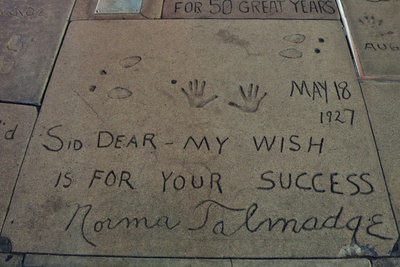 FOR 50 GREAT YEARS
AUG
MAY 18
1927
SID DEAR - MY WISH
IS FOR YOUR SUCCESS
Norma Talmadge